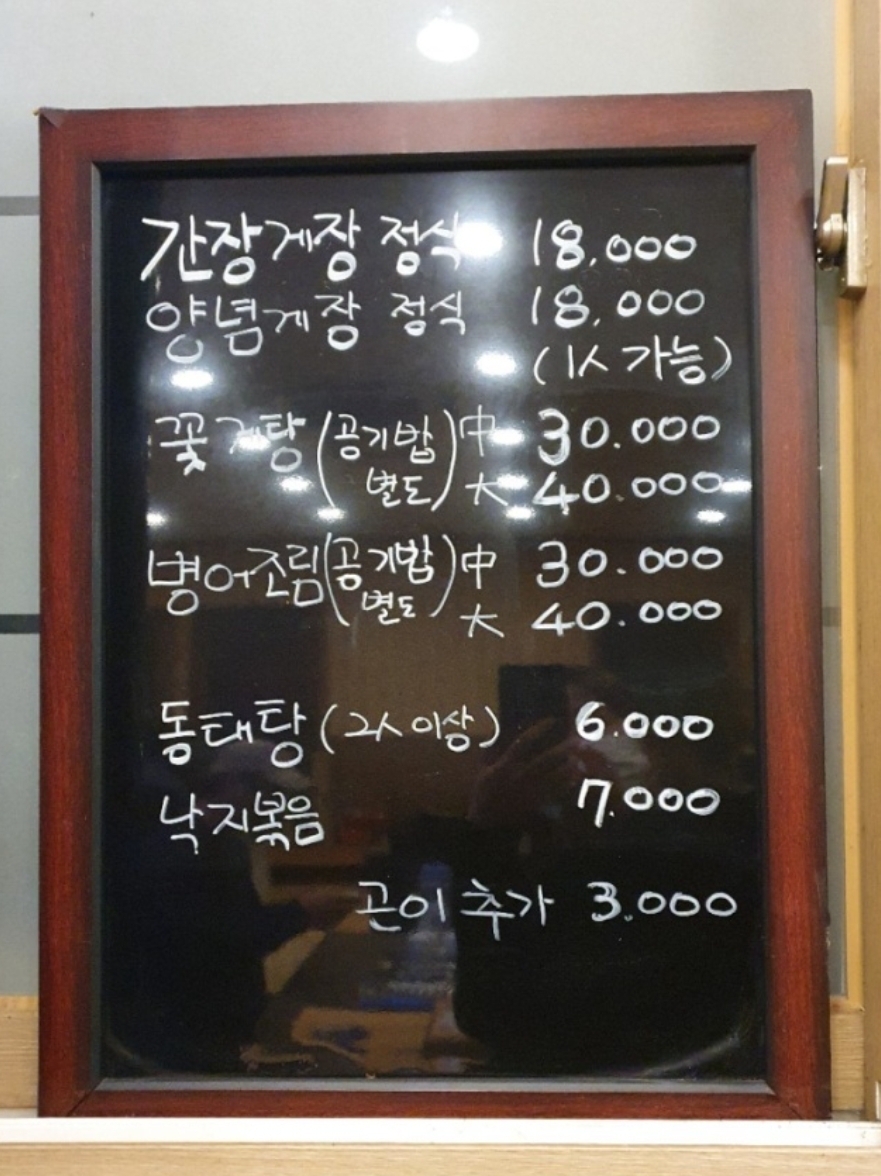 간장게장 정식 18,000
양념게장 정식 18,000
(1人 가능)
꽃게탕 (공기밥 별도) 中 30.000
大 40.000
병어조림 (공기밥 별도) 中 30.000
大 40.000
동태탕 (2人 이상) 6.000
낙지볶음 7.000
곤이 추가 3.000